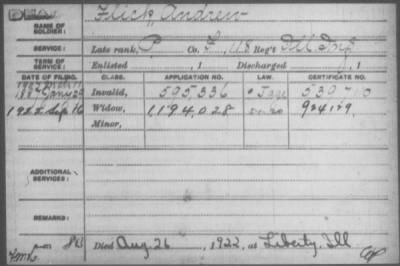 DEAD
NAME OF SOLDIER: Flick, Andrew
SERVICE: Late rank, P Co. F, 48 Reg't Ill Inf
TERM OF SERVICE: Enlisted , 1 Discharged , 1
DATE OF FILING. CLASS. APPLICATION NO. LAW. CERTIFICATE NO.
Invalid, 595,336
1922 Sep 16 Widow, 1,194,028
Minor,
ADDITIONAL SERVICES:
REMARKS:
Died Aug. 26 , 1922, at Liberty, Ill